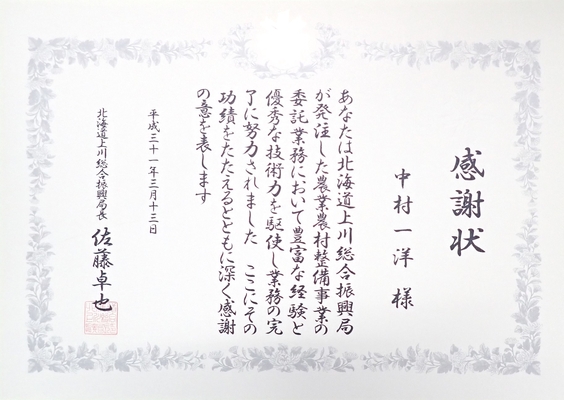 感謝状
中村一洋 様
あなたは北海道上川総合振興局
が発注した農業農村整備事業の
委託業務において豊富な経験と
優秀な技術力を駆使し業務の完
了に努力されました ここにその
功績をたたえるとともに深く感謝
の意を表します
平成三十一年三月十三日
北海道上川総合振興局長 佐藤卓也